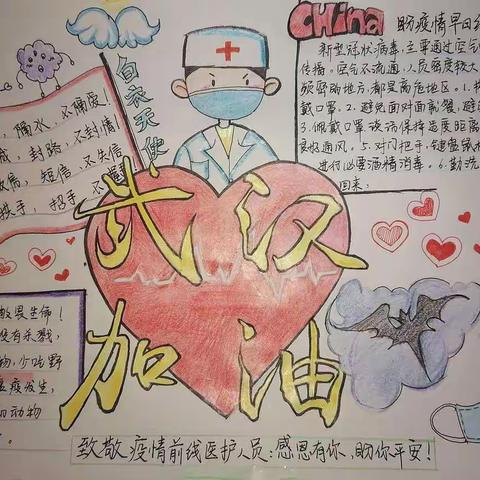 CHina 盼疫情早日
新型冠状病毒主要通过空气
传播。空气不流通，人员密度较大
频密的地方，都是高危地区。1.
戴口罩。2.避免面对面就餐，避
3.佩戴口罩谈话保持适度距离
良好通风。5.对门把手、键盘鼠标
进行必要酒精消毒。6.勤洗
回来：
白衣天使
，隔水，不隔爱！
城，封路，不封情
信，短信，不失信
拱手，招手，不
武汉
加油
敬畏生命！
没有杀戮，
物，少吃野
疫发生，
动物
致敬疫情前线医护人员：感恩有你，盼你平安！